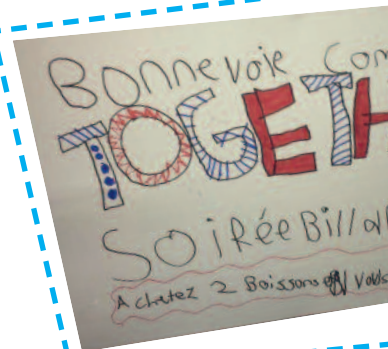 Bonnevoie Com
TOGETH
SoiRée Billa
Achetez 2 Boissons Vous